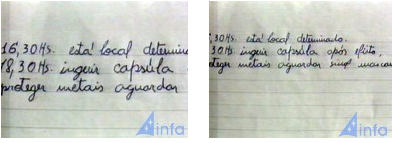 16,30Hs. está local determin
18,30Hs. ingerir capsúla
proteger metais aguardar
infa
,30Hs. está local determinado.
30Hs ingerir capsúla após efeito,
oteger metais aguardar sinal mascar
infa